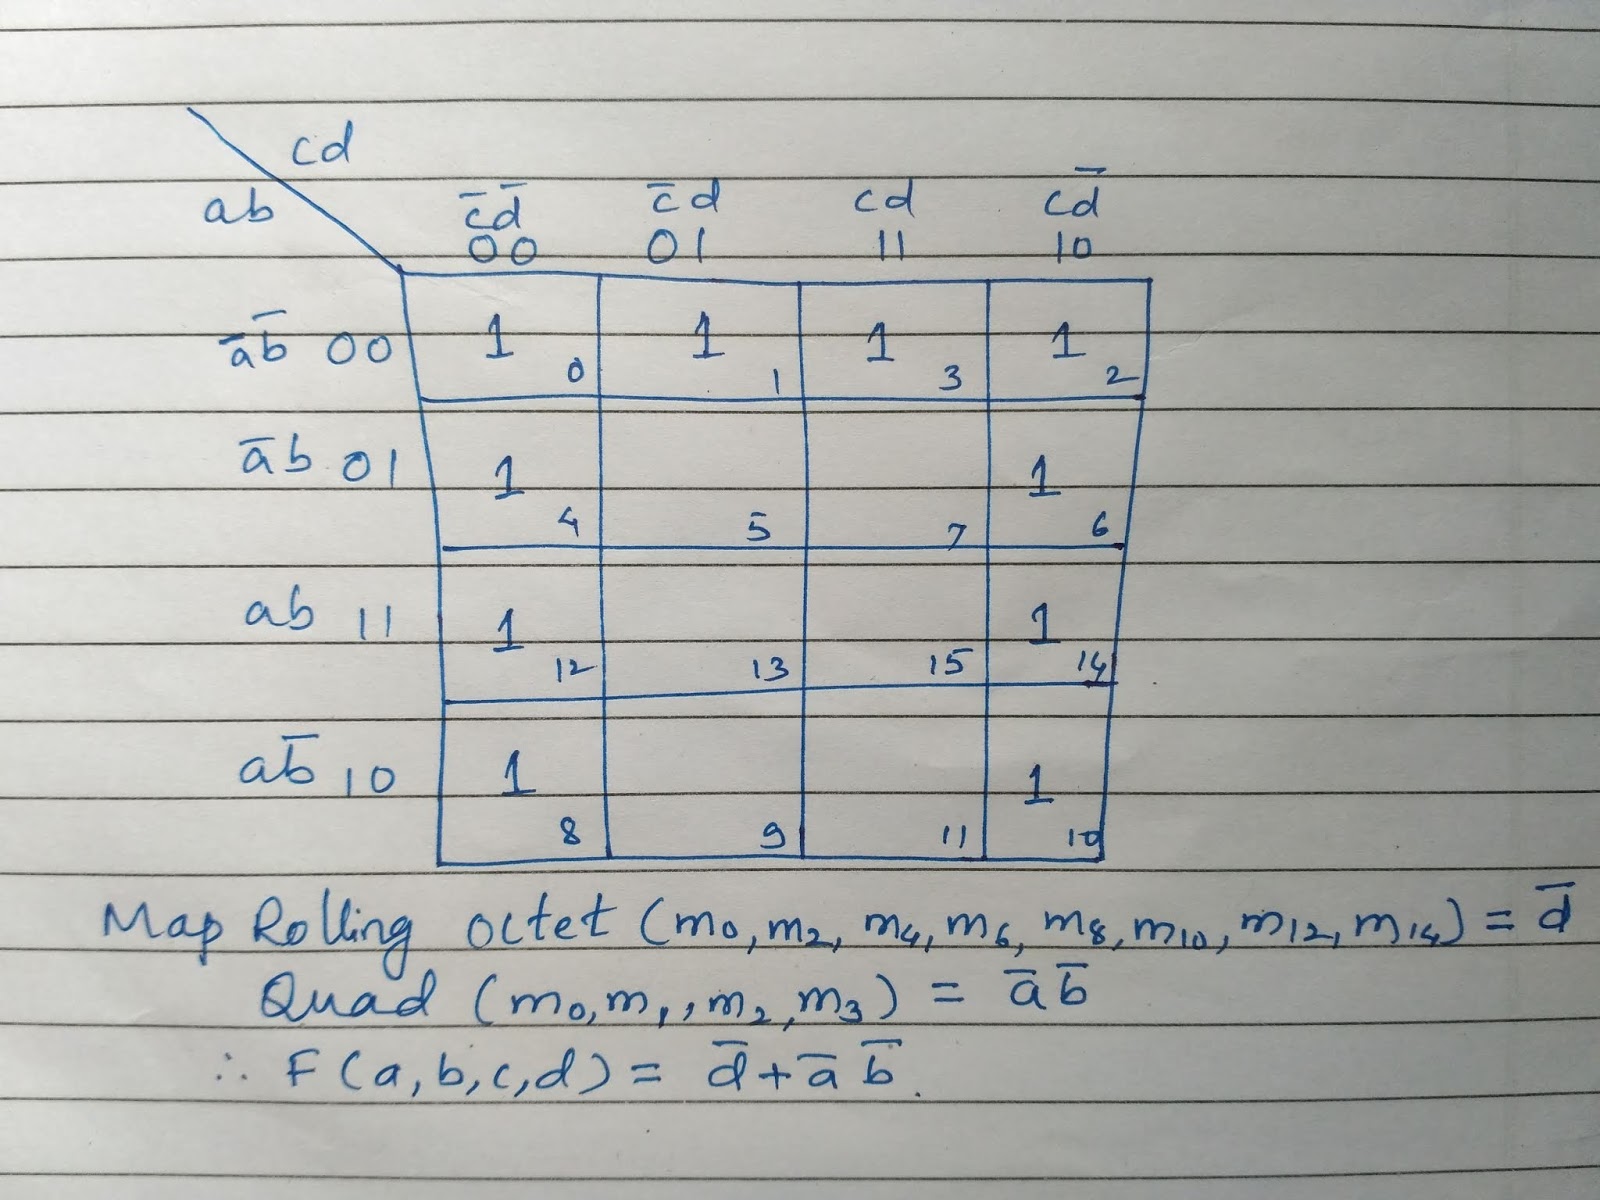 cd
ab
c̅d̅ c̅d cd cd̅
00 01 11 10
a̅b̅ 00 1 1 1 1
0 1 3 2
a̅b 01 1 1
4 5 7 6
ab 11 1 1
12 13 15 14
ab̅ 10 1 1
8 9 11 10
Map Rolling octet (m0, m2, m4, m6, m8, m10, m12, m14) = d̅
Quad (m0, m1, m2, m3) = a̅ b̅
∴ F(a, b, c, d) = d̅ + a̅ b̅.